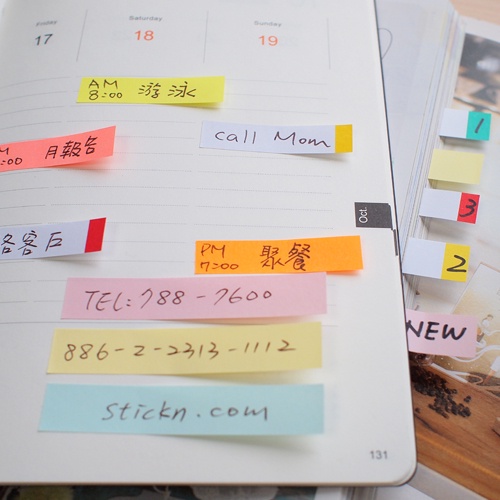 Friday
Saturday
Sunday
17
18
19
AM
8:00 游泳
call Mom
月報告
:00
客戶
PM
7:00 聚餐
Oct.
TEL: 788-7600
886-2-2313-1112
stickn.com
131
1
3
2
NEW